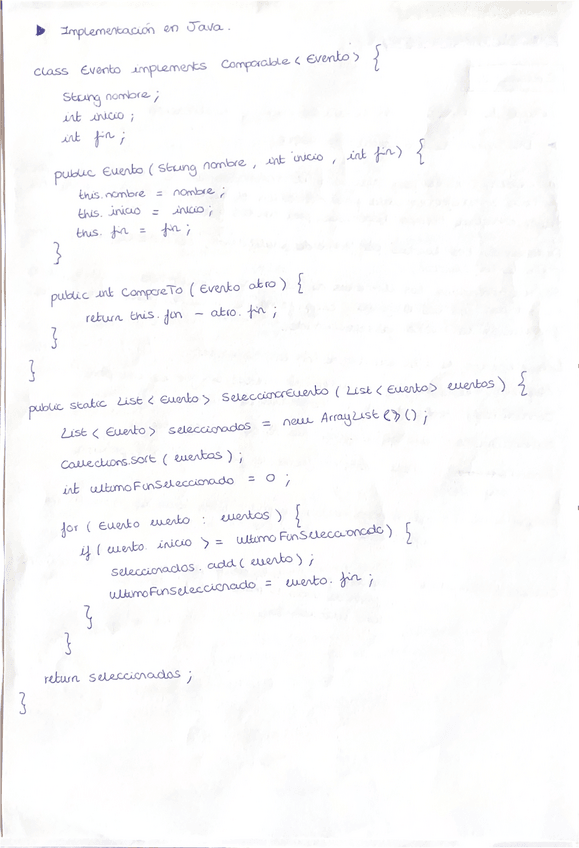 ▶ Implementación en Java.
class Evento implements Comparable < Evento > {
String nombre ;
int inicio ;
int fin ;
public Evento ( String nombre , int inicio , int fin ) {
this.nombre = nombre ;
this. inicio = inicio ;
this. fin = fin ;
}
public int CompareTo ( Evento otro ) {
return this. fin - otro. fin ;
}
}
public static List < Evento > SeleccionarEvento ( List < Evento > eventos ) {
List < Evento > seleccionados = new ArrayList <> () ;
Collections.sort ( eventos ) ;
int ultimoFinSeleccionado = 0 ;
for ( Evento evento : eventos ) {
if ( evento. inicio >= ultimoFinSeleccionado ) {
seleccionados. add ( evento ) ;
ultimoFinSeleccionado = evento. fin ;
}
}
return seleccionados ;
}